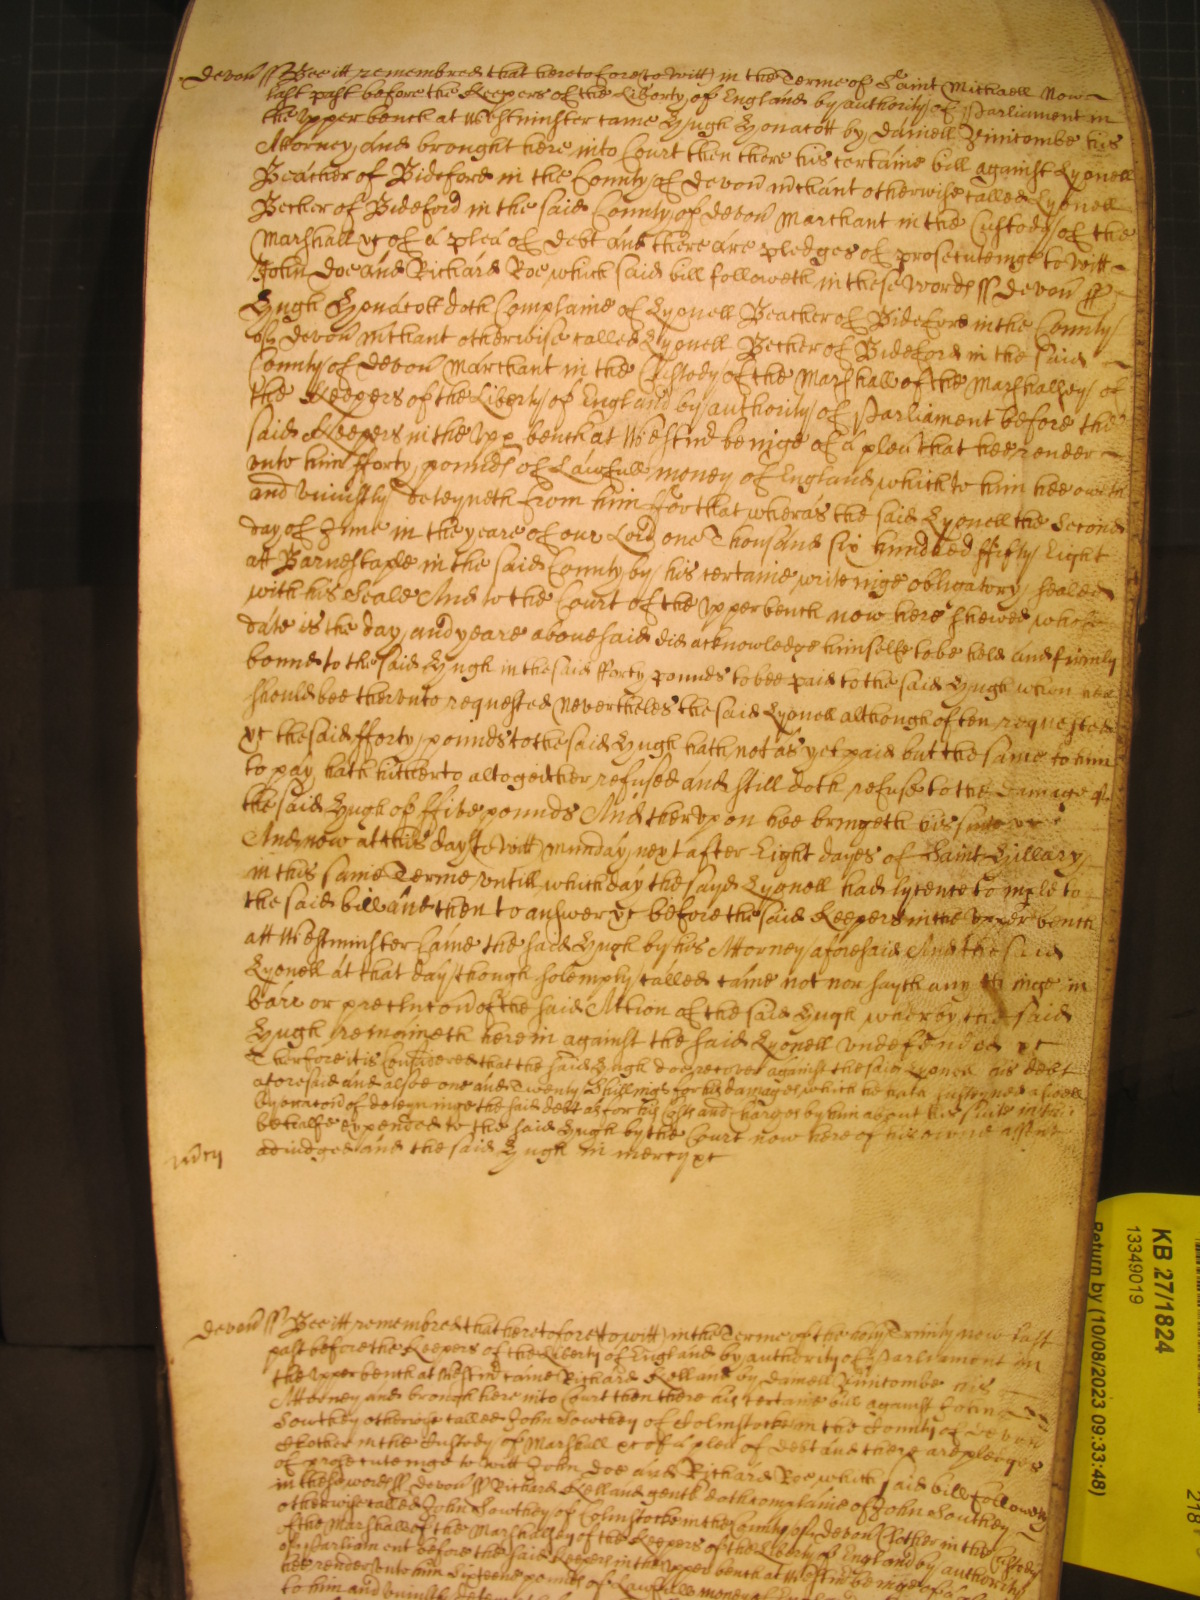 Devon ss Bee itt remembred that heretofore (to witt) in the Terme of Saint Michaell now
last past before the Keepers of the Liberty of England by authority of Parliament in
the upper bench at Westminster came Hugh Honacott by Daniell Pincombe his
Attorney and brought here into Court then there his certaine bill against Lyonell
Beacher of Bideford in the County of Devon mchant otherwise called Lyonell
Becher of Bideford in the said County of Devon Marchant in the Custody of the
Marshall &c of a plea of debt and there are pledges of prosecuteinge to witt
John Doe and Richard Roe which said bill followeth in these words ss Devon ss
Hugh Honacott doth Complaine of Lyonell Beacher of Bideford in the County
of Devon mchant otherwise called Lyonell Becher of Bideford in the said
County of Devon Marchant in the Custody of the Marshall of the Marshallsey of
the Keepers of the Liberty of England by authority of Parliament before the
said Keepers in the upp bench at Westmr beinge of a plea that hee render
unto him fforty pounds of Lawfull money of England which to him hee oweth
and uniustly deteyneth from him ffor that wheras the said Lyonell the second
day of June in the yeare of our Lord one Thousand six hundred ffifty Eight
att Barnestaple in the said County by his certaine writeinge obligatory sealed
with his Seale And to the Court of the upper bench now here shewed whose
date is the day and yeare abovesaid did acknowledge himselfe to be held and firmly
bound to the said Hugh in the said fforty pounds to bee paid to the said Hugh when hee
should bee therunto requested Nevertheles the said Lyonell although often requested
&c the said fforty pounds to the said Hugh hath not as yet paid but the same to him
to pay hath hitherto altogeither refused and still doth refuse to the damage of
the said Hugh of ffive pounds And therupon hee bringeth his suite &c
And now at this day (to witt) munday next after Eight dayes of Saint Hillary
in this same Terme untill which day the sayd Lyonell had lycence to imple to
the said bill and then to answer &c before the said Keepers in the upper bench
att Westminster Came the said Hugh by his Attorney aforesaid And the said
Lyonell at that day though solemply called came not nor sayth any thinge in
barr or preclucon of the said Action of the said Hugh wherby the said
Hugh remaineth herein against the said Lyonell undefended &c
Therfore it is Considered that the said Hugh doe recover against the said Lyonell his debt
aforesaid and alsoe one and Twenty Shillings for his damages which he hath susteyned aswell
by occacon of deteyninge the said debt as for his Costs and charges by him about his suite in this
behalfe expended to the said Hugh by the Court now here of his owne assent
adiudged and the said Hugh in mercy &c
mcy
Devon ss Bee itt remembred that heretofore (to witt) in the Terme of the holy Trinity now last
past before the Keepers of the Liberty of England by authority of Parliament in
the upper bench at Westmr came Richard Kelland by Daniell Pincombe his
Attorney and brough here into Court then there his certaine bill against John
Southey otherwise called John Sowthey of Colmstocke in the County of Devon
Clothier in the Custody of Marshall &c of a plea of debt and there are pledges
of prosecuteinge to witt John Doe and Richard Roe which said bill followeth
in these words ss Devon ss Richard Kelland gentl doth complaine of John Southey
otherwise called John Sowthey of Colmstocke in the County of Devon Clothier in the Custody
of the Marshall of the Marshallsey of the Keepers of the Liberty of England by authority
of Parliament before the said Keepers in the upper bench at Westmr beinge of a
hee render unto him Sixteene pounds of Lawfull money of
to him and uniustly
KB 27/1824
13349019
Return by (10/08/2023 09:33:48)